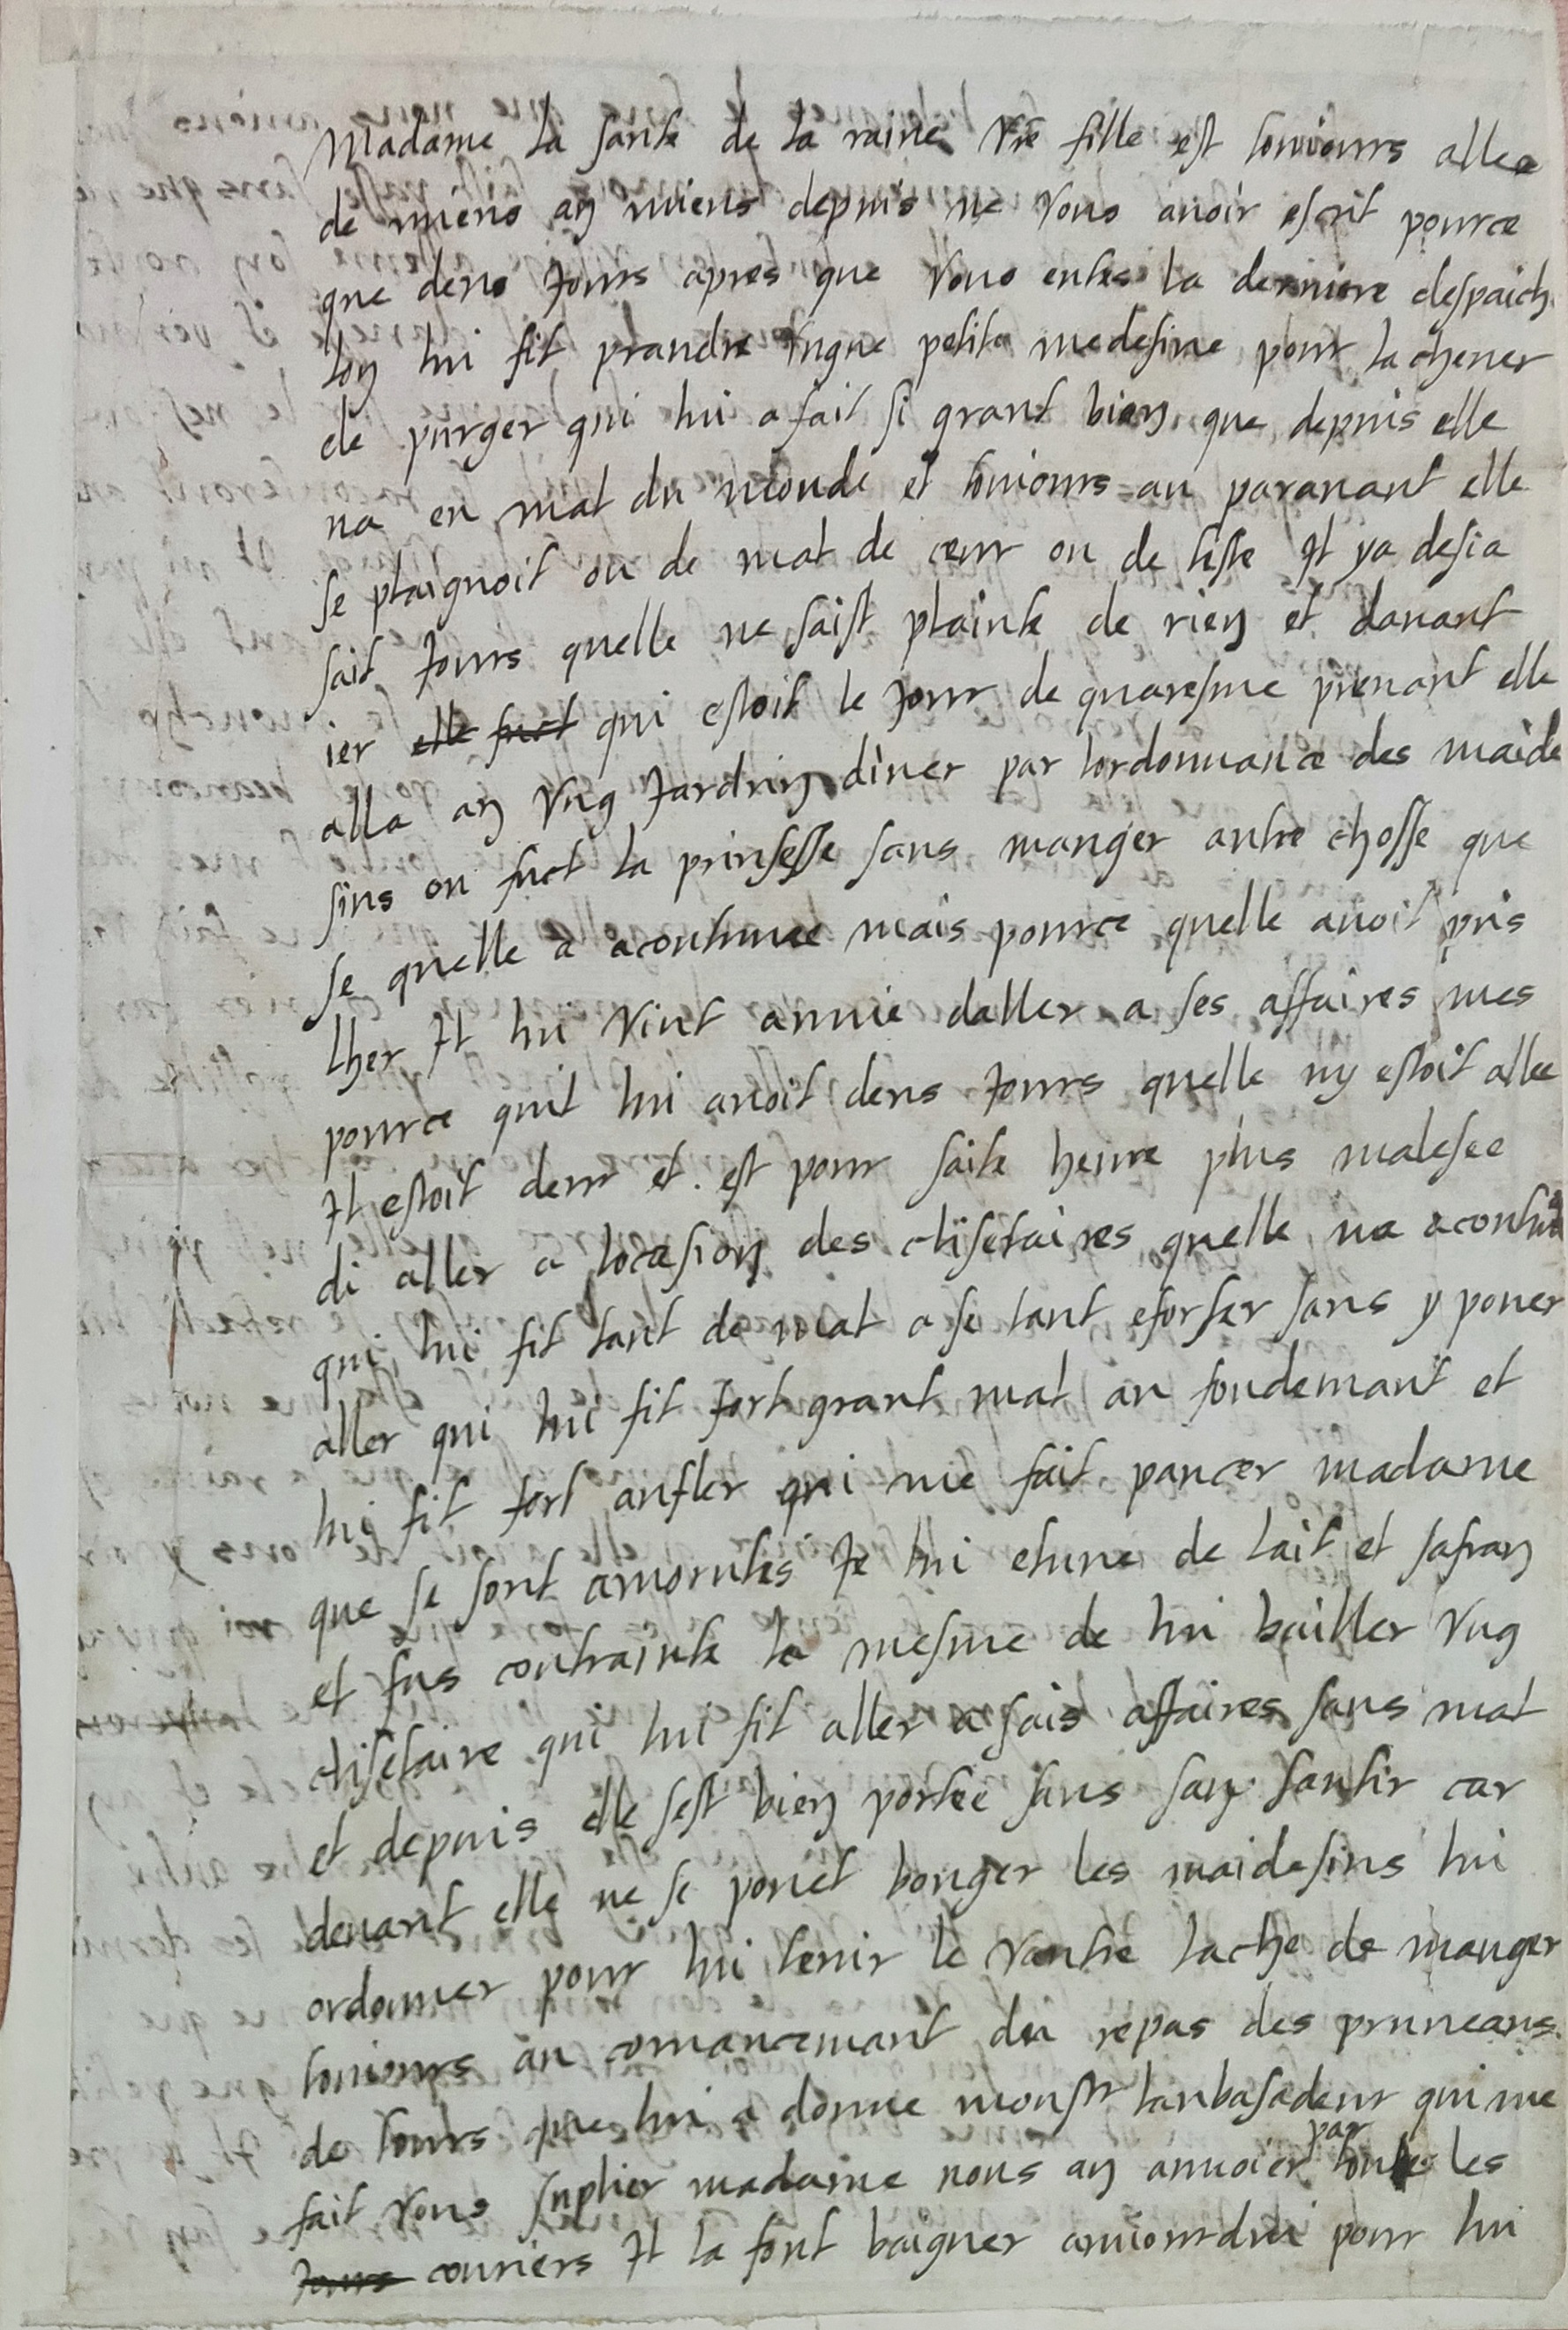 Madame la sante de la raine vre fille est touiours allee
de miens an miens depuis ne vous auoir escrit pource
que deus Jours apres que vous entes la derniere despaich
lon lui fit prandre vngue petite medesine pour lachever
de purger qui lui a fait si grant bien que depuis elle
na eu mal du monde et touiours au parauant elle
se plaignoit ou de mal de ceur ou de teste Il ya desia
sait Jours quelle ne faist plainte de rien et dauant
ier elle fuct qui estoit le Jour de quaresme prenant elle
alla an vng Jardrin diner par lordonnance des maide
sins ou fuct la prinsesse sans manger autre chosse que
se quelle a acoutumee mais pource quelle auoit pris
lher Il lui vint annuie daller a ses affaires mes
pource quil lui auoit deus Jours quelle ny estoit allee
Il estoit deur et est pour saite heure plus malesee
di aller a locasion des clisetaires quelle na acoutum
qui lui fit tant de mal a se tant eforser sans y pouer
aller qui lui fit fort grant mal au fondemant et
lui fit fort anfler qui me fait pancer madame
que se sont amorutes Je lui etuue de lait et safran
et fus contrainte la mesme de lui bailler vng
clisetaire qui lui fit aller a sais affaires sans mal
et depuis elle sest bien portee sans san santir car
deuant elle ne se pouet bouger les maidesins lui
ordonner pour lui tenir le vantre lache de manger
touiours au comancemant du repas des pruneaus
de tours que lui a donne monsr lanbasadeur qui me
fait vous suplier madame nous an anuoier par toute les
Jours couriers Il la font baigner auiourdui pour lui